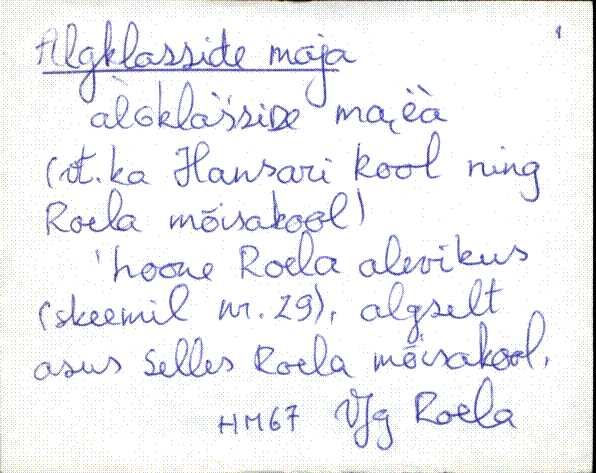 1
Algklasside maja
àlGklàsside ma,ëà
(vt. ka Hansari kool ning
Roela mõisakool)
'hoone Roela alevikus
(skeemil nr. 29), algselt
asus selles Roela mõisakool.
HM67 VJg Roela